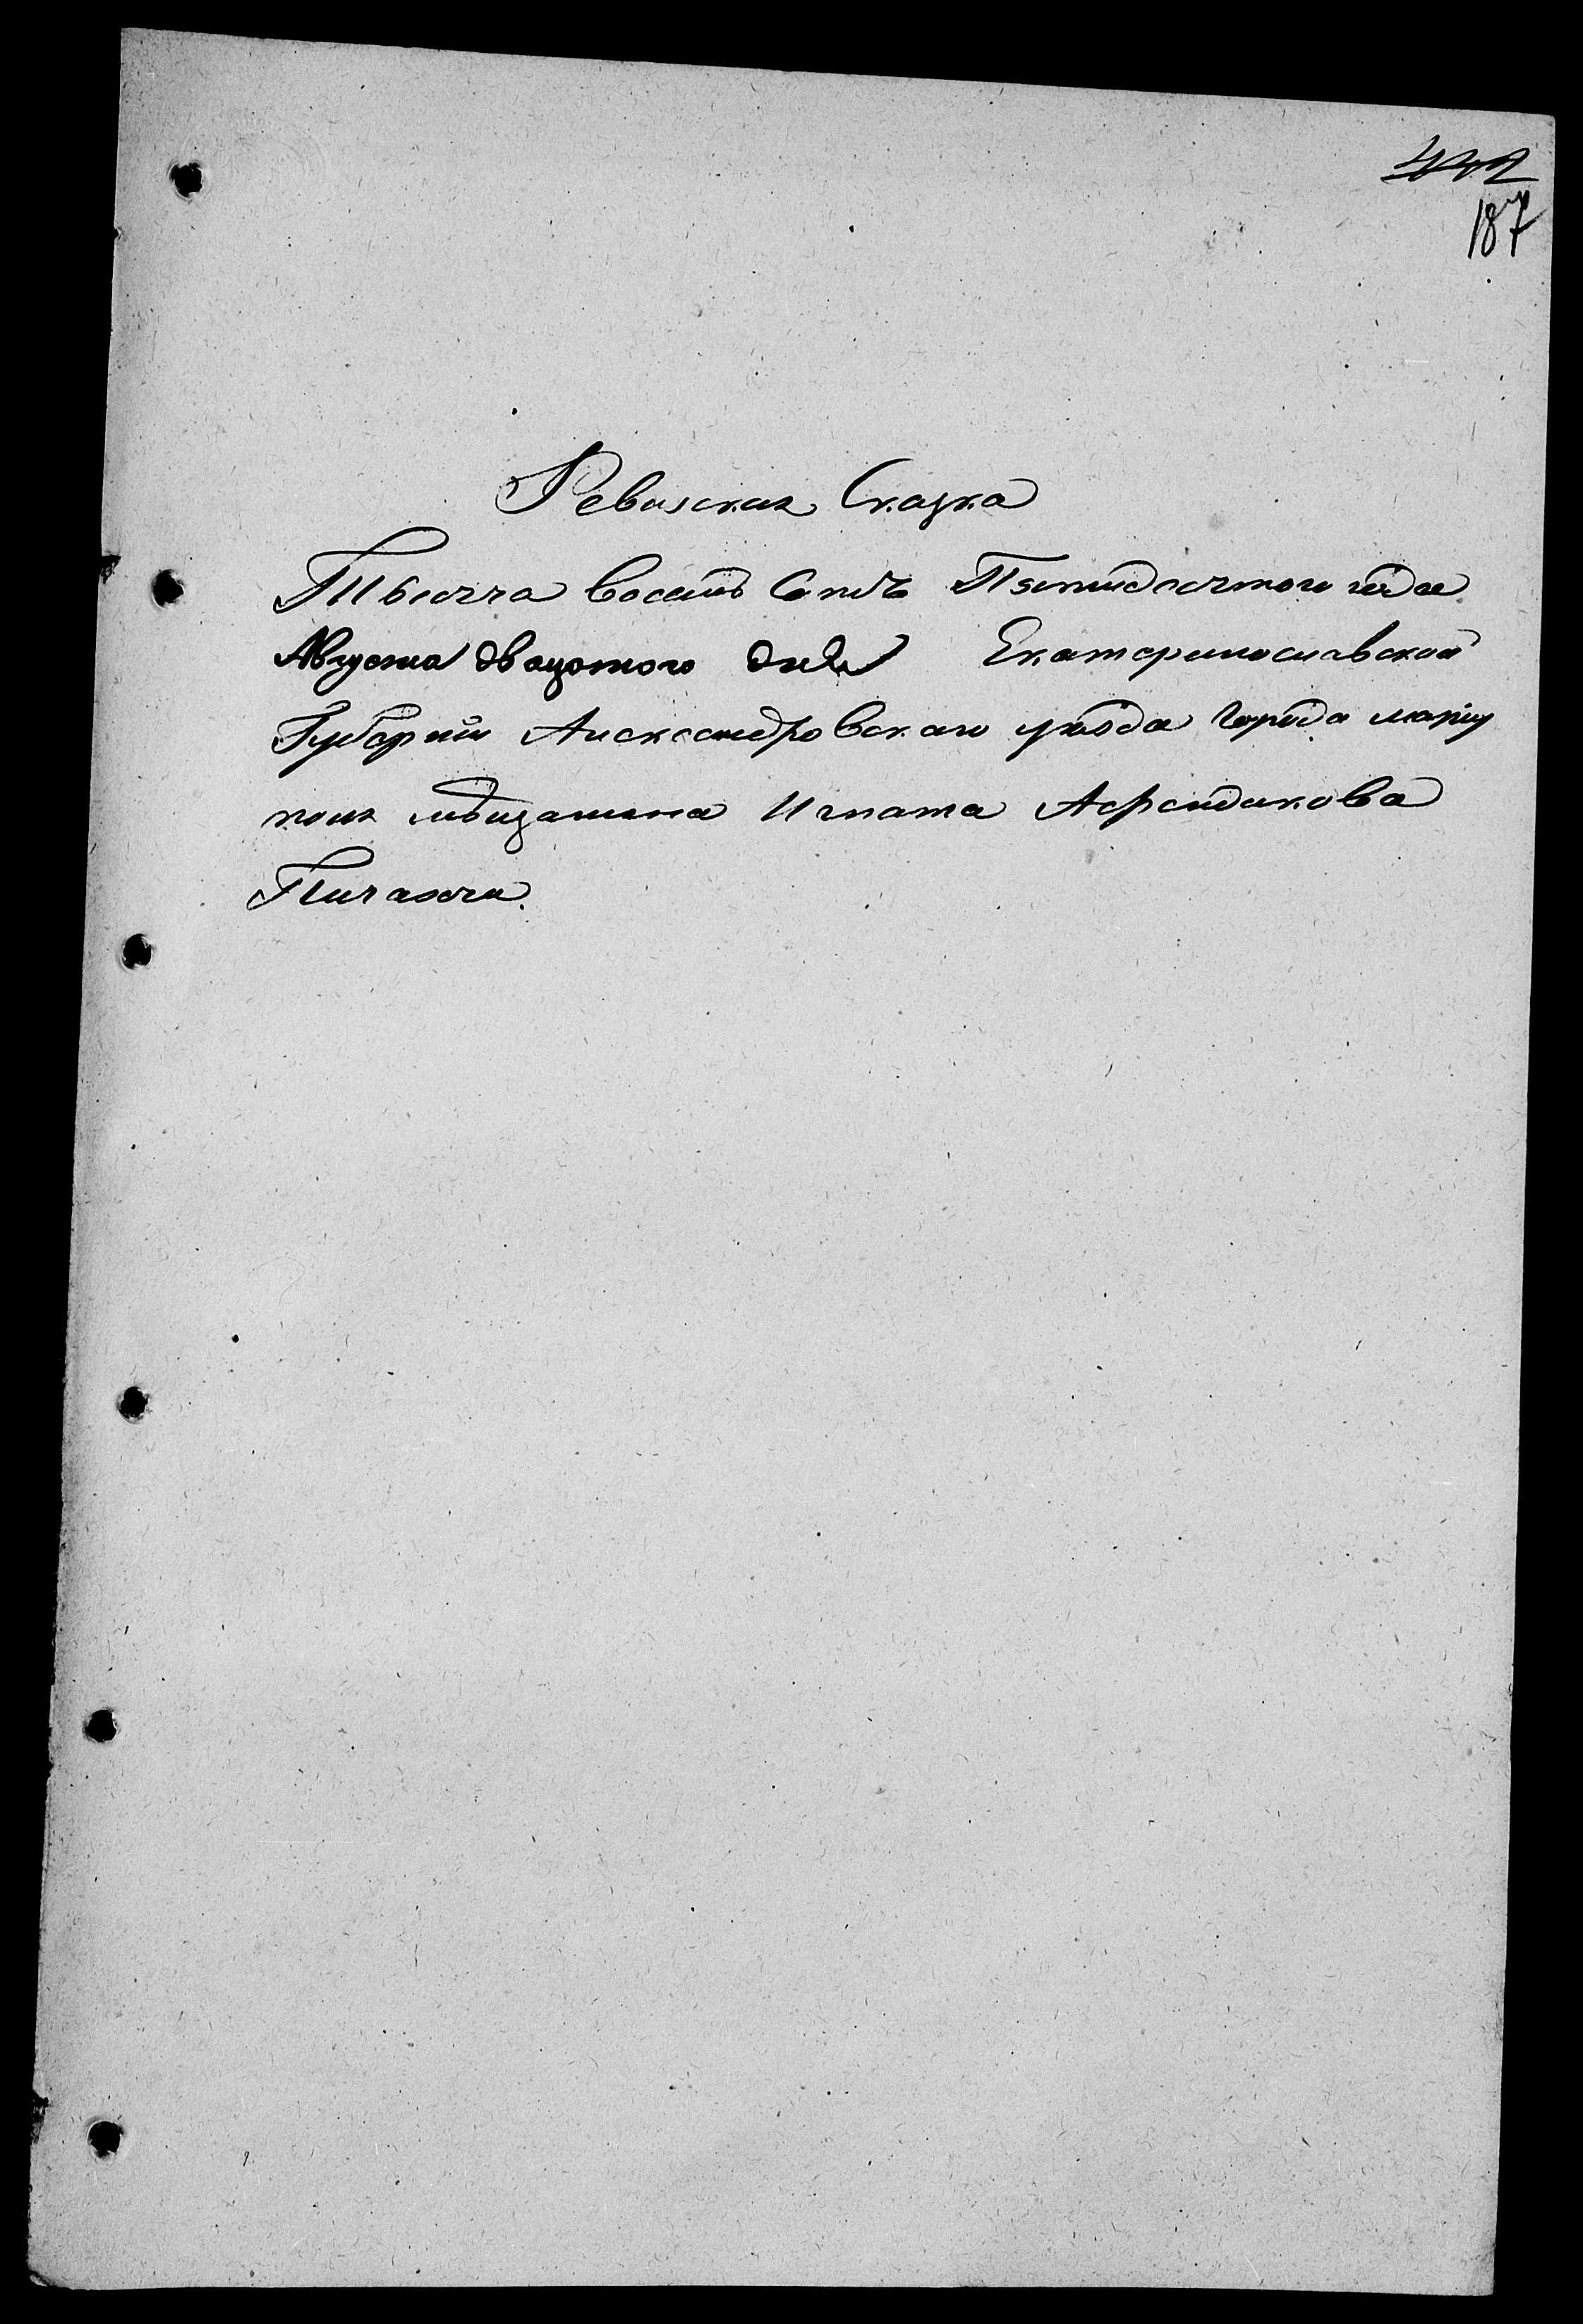 187
Ревизская Сказка
Тысяча восемь Сотъ Пятидесятого года
Августа двацятого дня Екатеринославской
Губернии Александровского уѣзда Города мариу
поля мѣщанина Игната